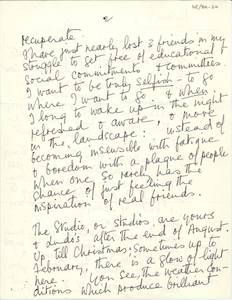 2/
recuperate.
I have just nearly lost 3 friends in my
struggle to get free of educational &
social commitments & committees.
I want to be truly selfish - to go
where I want to go & when
I long to wake up in the night
refreshed & aware, & move
in the landscape: instead of
becoming insensible with fatigue
& boredom with a plague of people
when one so rarely has the
chance of just feeling the
inspiration of real friends.
The Studio, or studios, are yours
& Linda's after the end of August.
Up, till Christmas. Sometimes up to
February, there is a glow of light
here. You see, the weather con-
ditions which produce brilliant